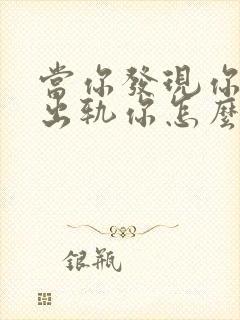 當你發現你
出軌你怎麼
银瓶